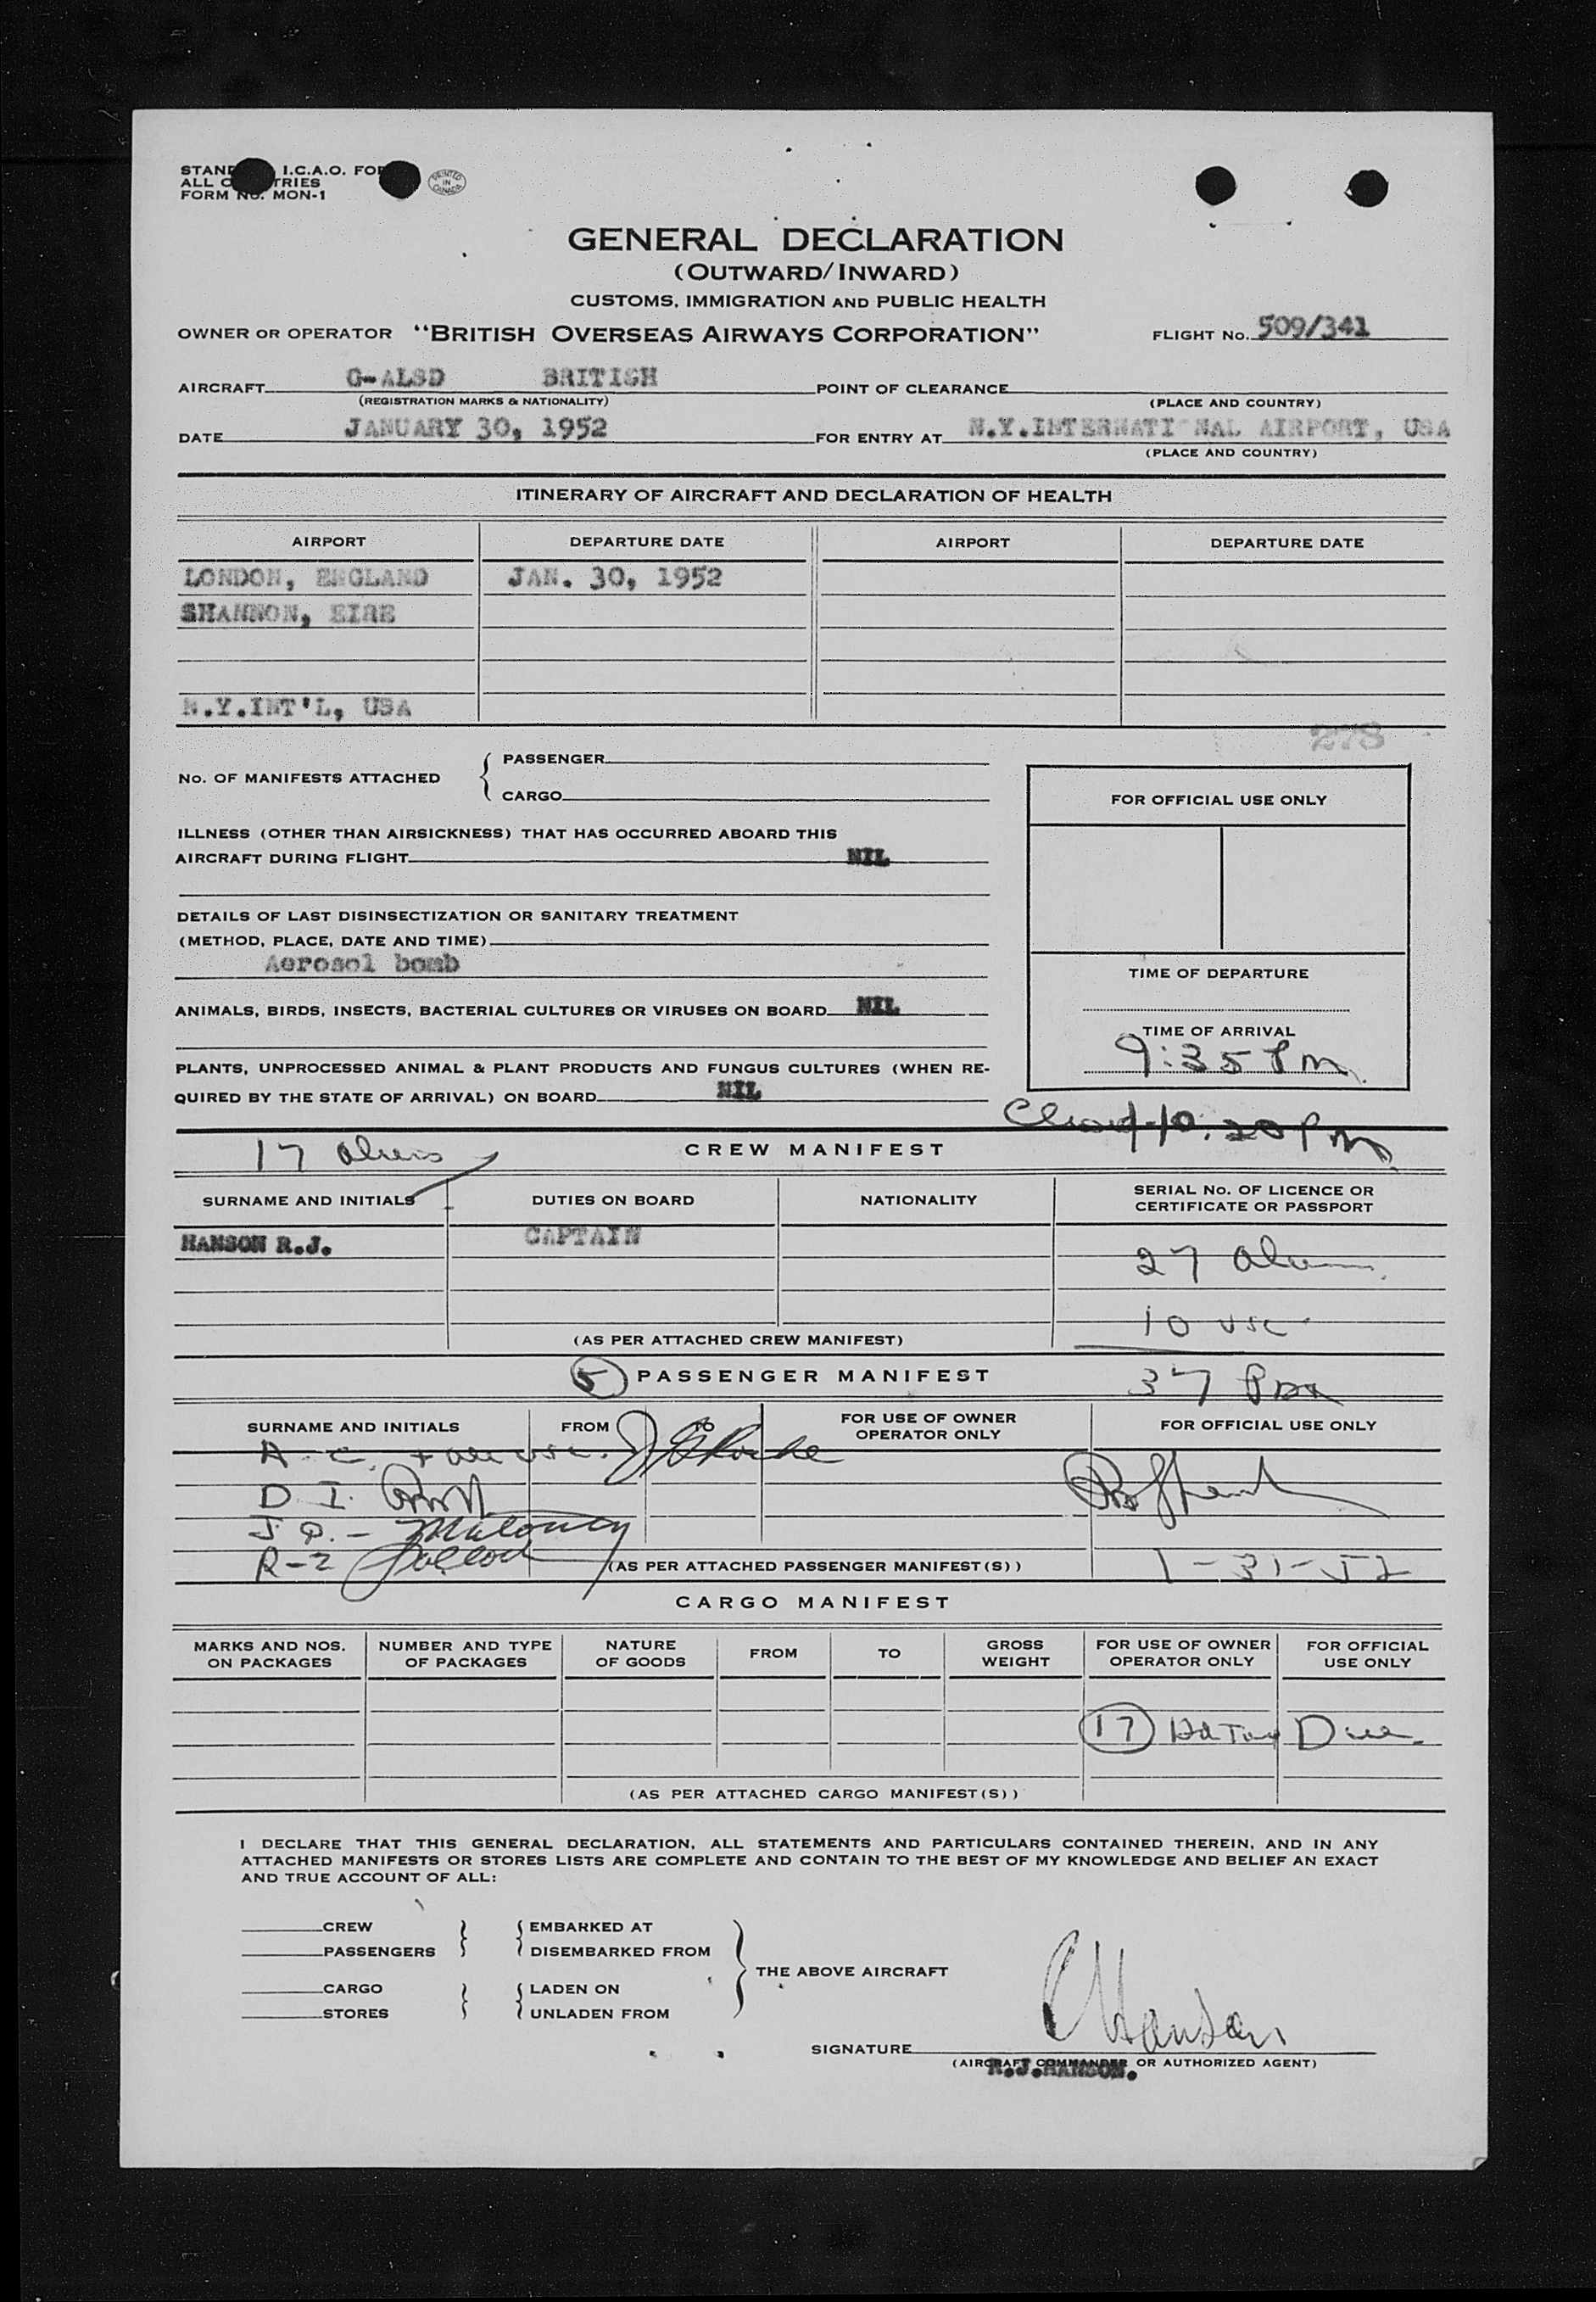 STAND I.C.A.O. FOR
ALL COUNTRIES
FORM No. MON-1
PRINTED IN CANADA
GENERAL DECLARATION
(OUTWARD/INWARD)
CUSTOMS, IMMIGRATION AND PUBLIC HEALTH
OWNER OR OPERATOR "BRITISH OVERSEAS AIRWAYS CORPORATION" FLIGHT No. 509/341
AIRCRAFT G-ALSD BRITISH POINT OF CLEARANCE
(REGISTRATION MARKS & NATIONALITY) (PLACE AND COUNTRY)
DATE JANUARY 30, 1952 FOR ENTRY AT N.Y.INTERNATI NAL AIRPORT, USA
(PLACE AND COUNTRY)
ITINERARY OF AIRCRAFT AND DECLARATION OF HEALTH
AIRPORT DEPARTURE DATE AIRPORT DEPARTURE DATE
LONDON, ENGLAND JAN. 30, 1952
SHANNON, EIRE
N.Y.INT'L, USA
278
No. OF MANIFESTS ATTACHED PASSENGER
CARGO
FOR OFFICIAL USE ONLY
ILLNESS (OTHER THAN AIRSICKNESS) THAT HAS OCCURRED ABOARD THIS
AIRCRAFT DURING FLIGHT NIL
DETAILS OF LAST DISINSECTIZATION OR SANITARY TREATMENT
(METHOD, PLACE, DATE AND TIME)
Aerosol bomb
TIME OF DEPARTURE
ANIMALS, BIRDS, INSECTS, BACTERIAL CULTURES OR VIRUSES ON BOARD NIL
TIME OF ARRIVAL
9:35 PM
PLANTS, UNPROCESSED ANIMAL & PLANT PRODUCTS AND FUNGUS CULTURES (WHEN RE-
QUIRED BY THE STATE OF ARRIVAL) ON BOARD NIL
10:20 PM
17 aliens CREW MANIFEST
SURNAME AND INITIALS DUTIES ON BOARD NATIONALITY SERIAL No. OF LICENCE OR
CERTIFICATE OR PASSPORT
HANSON R.J. CAPTAIN
27
10 USC
(AS PER ATTACHED CREW MANIFEST)
5 PASSENGER MANIFEST 37
SURNAME AND INITIALS FROM TO FOR USE OF OWNER
OPERATOR ONLY FOR OFFICIAL USE ONLY
A.C.
D.I.
Maloney
R-2
(AS PER ATTACHED PASSENGER MANIFEST(S)) 1-31-52
CARGO MANIFEST
MARKS AND NOS.
ON PACKAGES NUMBER AND TYPE
OF PACKAGES NATURE
OF GOODS FROM TO GROSS
WEIGHT FOR USE OF OWNER
OPERATOR ONLY FOR OFFICIAL
USE ONLY
17 Hd Tax Due
(AS PER ATTACHED CARGO MANIFEST(S))
I DECLARE THAT THIS GENERAL DECLARATION, ALL STATEMENTS AND PARTICULARS CONTAINED THEREIN, AND IN ANY
ATTACHED MANIFESTS OR STORES LISTS ARE COMPLETE AND CONTAIN TO THE BEST OF MY KNOWLEDGE AND BELIEF AN EXACT
AND TRUE ACCOUNT OF ALL:
CREW EMBARKED AT
PASSENGERS DISEMBARKED FROM
THE ABOVE AIRCRAFT
CARGO LADEN ON
STORES UNLADEN FROM
Hanson
SIGNATURE
(AIRCRAFT COMMANDER OR AUTHORIZED AGENT)
R.J.HANSON.